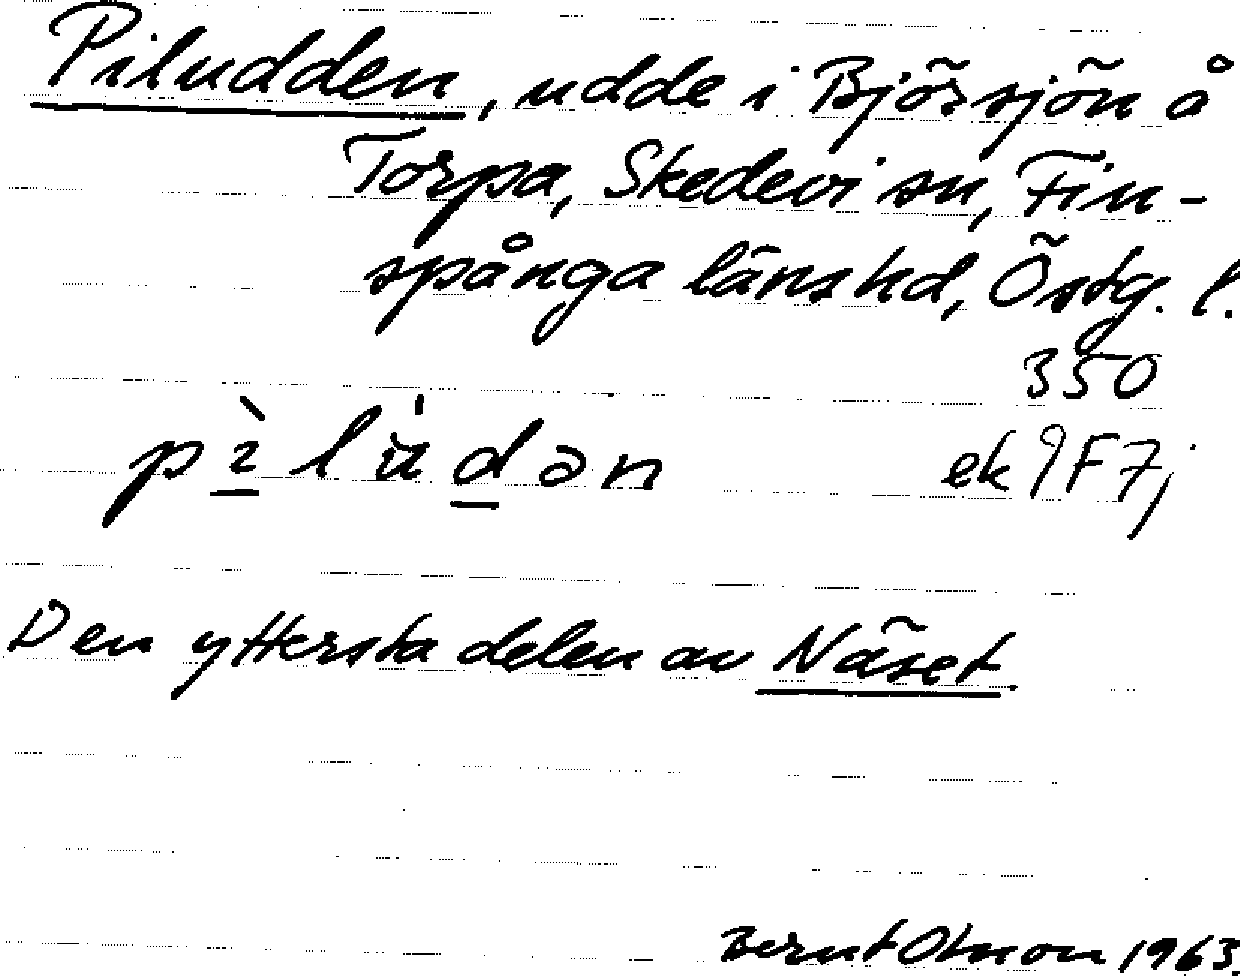 Piludden, udde i Björsjön å
Torpa, Skedevi sn, Fin-
spånga länshd, Östg. l.
350
pìlu̇dən ek 9F7j
Den yttersta delen av Näset.
Bernt Olsson 1963.